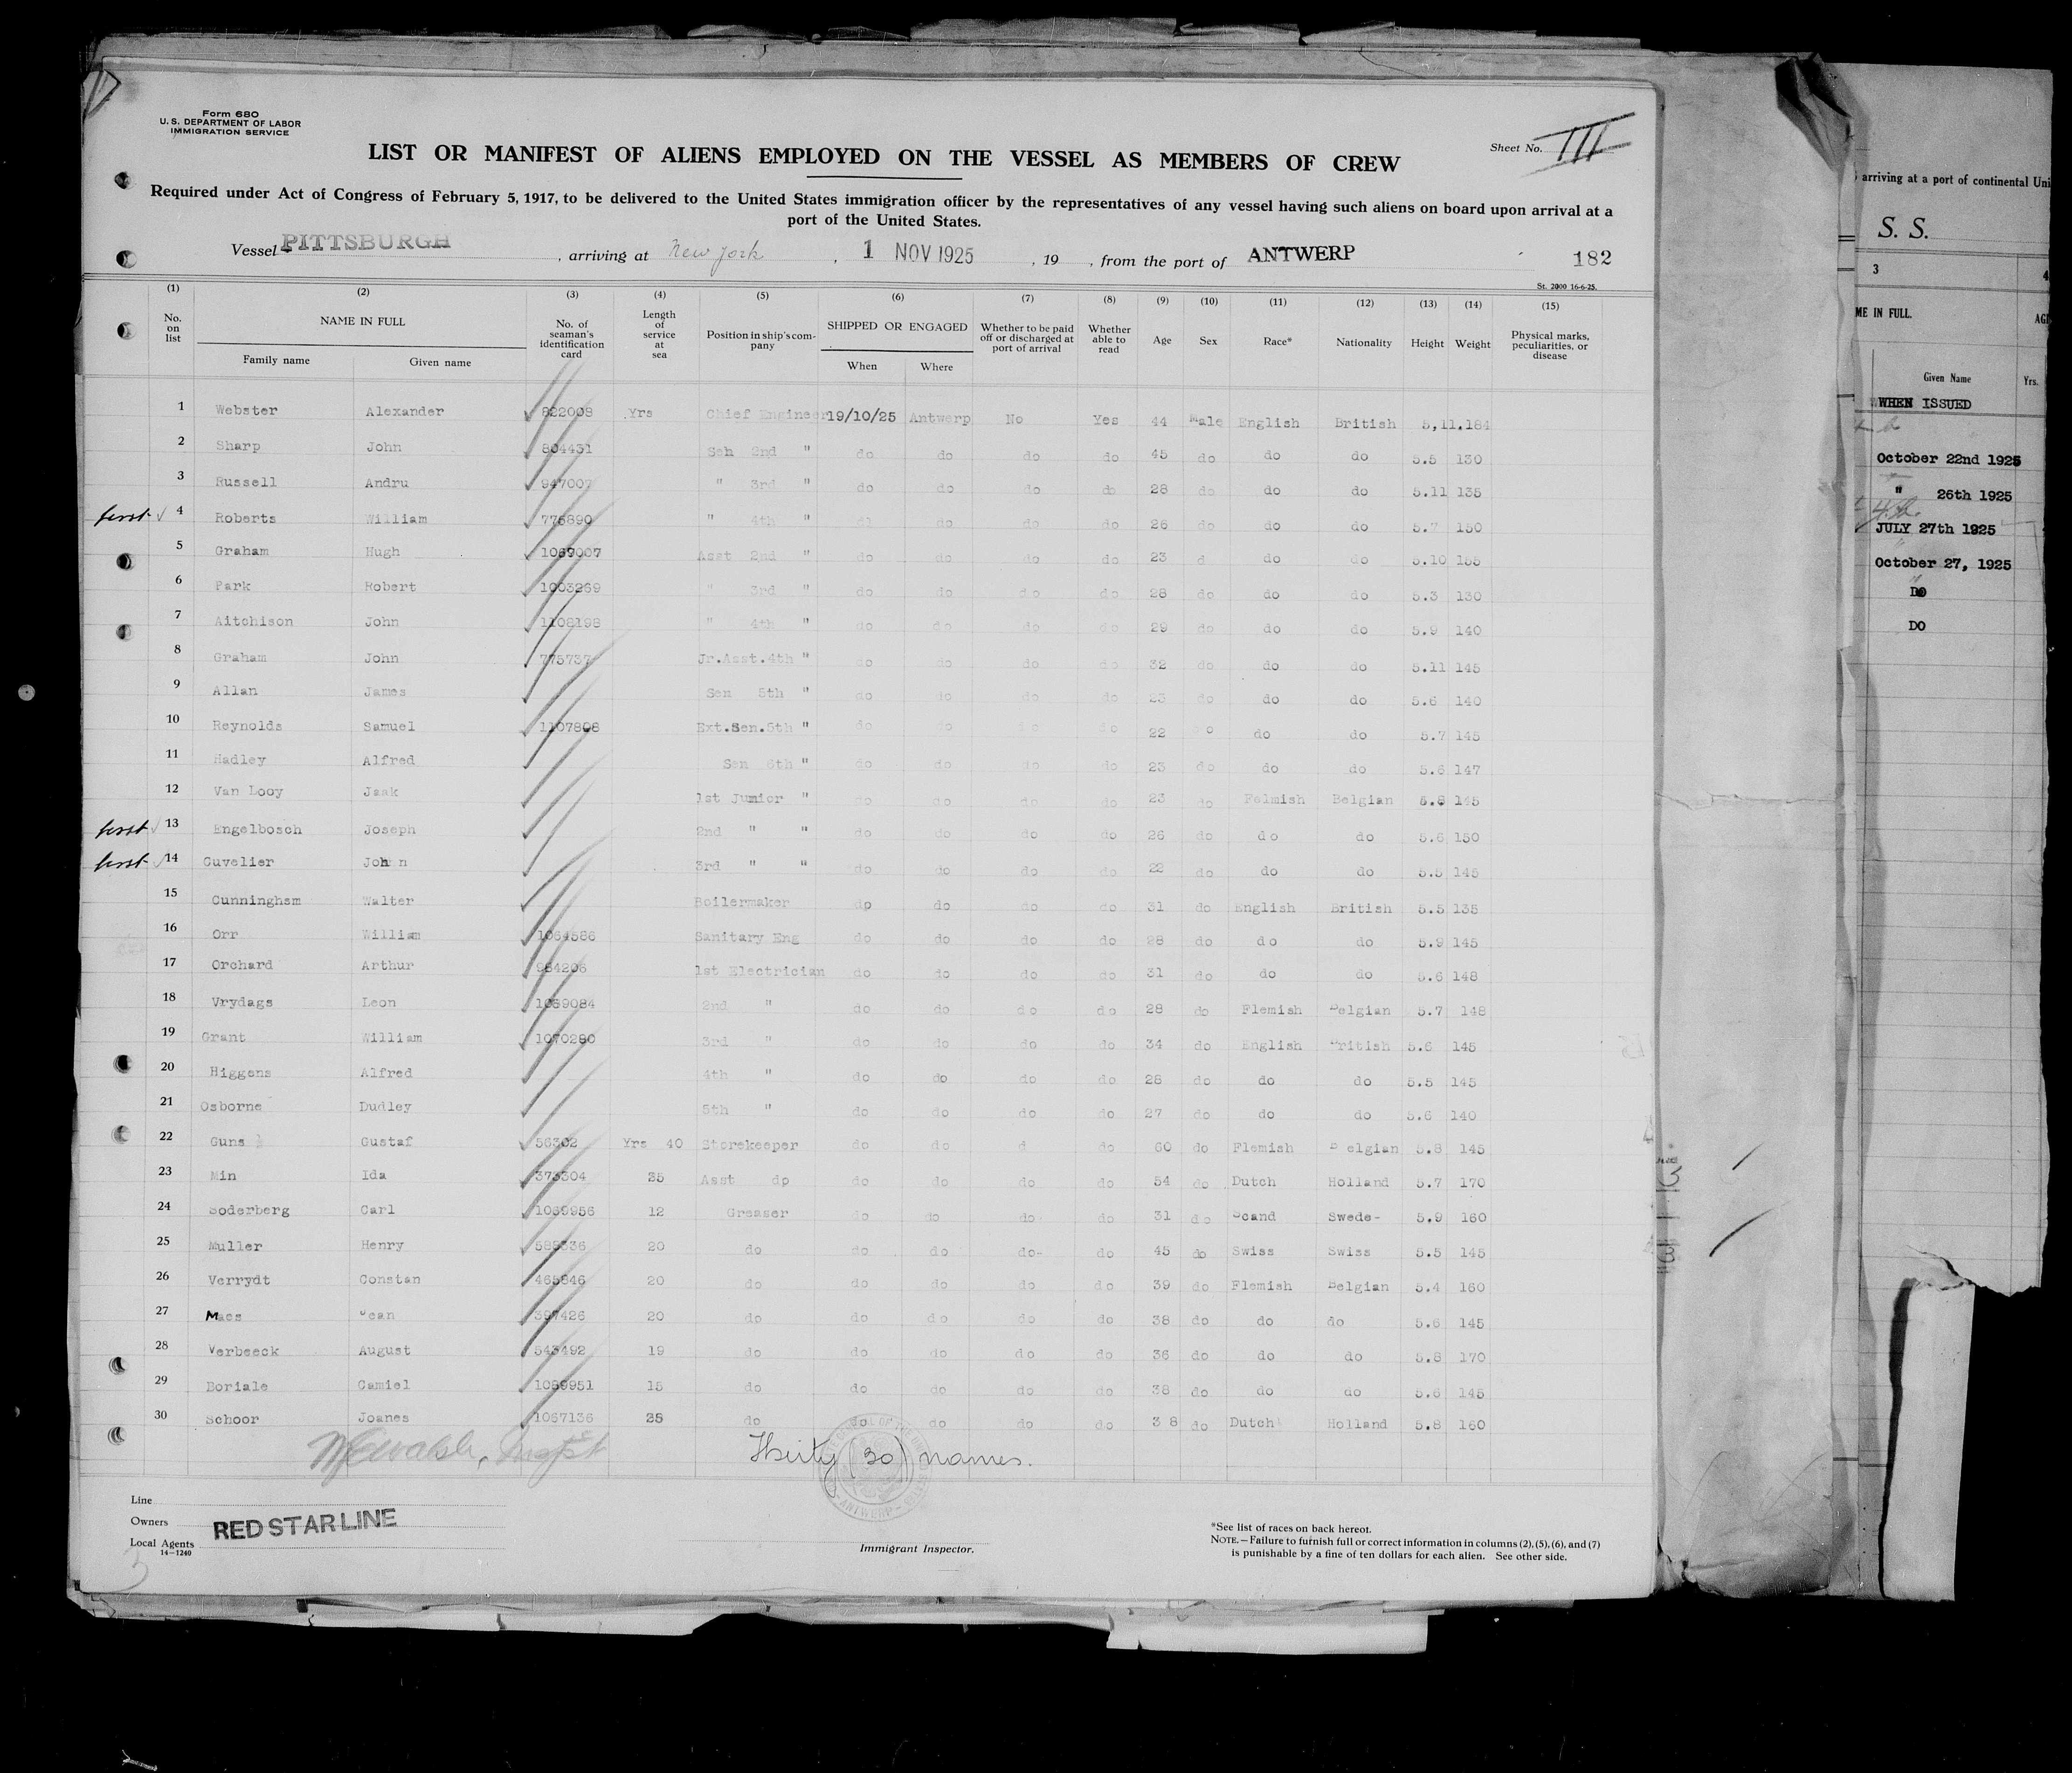 Form 680
U. S. DEPARTMENT OF LABOR
IMMIGRATION SERVICE
Sheet No. III
LIST OR MANIFEST OF ALIENS EMPLOYED ON THE VESSEL AS MEMBERS OF CREW
Required under Act of Congress of February 5, 1917, to be delivered to the United States immigration officer by the representatives of any vessel having such aliens on board upon arrival at a
port of the United States.
Vessel PITTSBURGH , arriving at New York , 1 NOV 1925 , 19 , from the port of ANTWERP 182
St. 2000 16-6-25.
(1) (2) (3) (4) (5) (6) (7) (8) (9) (10) (11) (12) (13) (14) (15)
No. on list NAME IN FULL Family name Given name No. of seaman's identification card Length of service at sea Position in ship's company SHIPPED OR ENGAGED When Where Whether to be paid off or discharged at port of arrival Whether able to read Age Sex Race* Nationality Height Weight Physical marks, peculiarities, or disease
1 Webster Alexander 822008 Yrs Chief Engineer 19/10/25 Antwerp No Yes 44 Male English British 5,11. 184
2 Sharp John 804431 Sen 2nd " do do do do 45 do do do 5.5 130
3 Russell Andru 947007 " 3rd " do do do do 28 do do do 5.11 135
first 4 Roberts William 775890 " 4th " do do do 26 do do do 5.7 150
5 Graham Hugh 1069007 Asst 2nd " do do do do 23 d do do 5.10 155
6 Park Robert 1003269 " 3rd " do do do do 28 do do do 5.3 130
7 Aitchison John 1108198 " 4th " do do do do 29 do do do 5.9 140
8 Graham John 775737 Jr.Asst.4th " do do do do 32 do do do 5.11 145
9 Allan James Sen 5th " do do do do 23 do do do 5.6 140
10 Reynolds Samuel 1107808 Ext.Sen.5th " do do do do 22 o do do 5.7 145
11 Hadley Alfred Sen 6th " do do do do 23 do do do 5.6 147
12 Van Looy Jaak 1st Junior " do do do do 23 do Felmish Belgian 5.6 145
first 13 Engelbosch Joseph 2nd " " do do do do 26 do do do 5.6 150
first 14 Cuvelier John 3rd " " do do do do 22 do do do 5.5 145
15 Cunninghsm Walter Boilermaker do do do do 31 do English British 5.5 135
16 Orr William 1064586 Sanitary Eng do do do do 28 do do do 5.9 145
17 Orchard Arthur 984206 1st Electrician do do do do 31 do do do 5.6 148
18 Vrydags Leon 1069084 2nd " do do do do 28 do Flemish Belgian 5.7 148
19 Grant William 1070280 3rd " do do do do 34 do English British 5.6 145
20 Higgens Alfred 4th " do do do do 28 do do do 5.5 145
21 Osborne Dudley 5th " do do do do 27 do do do 5.6 140
22 Guns Gustaf 56302 Yrs 40 Storekeeper do do d do 60 do Flemish Belgian 5.8 145
23 Min Ida 373304 25 Asst do do do do do 54 do Dutch Holland 5.7 170
24 Soderberg Carl 1069956 12 Greaser do do do do 31 do Scand Swede- 5.9 160
25 Muller Henry 588336 20 do do do do- do 45 do Swiss Swiss 5.5 145
26 Verrydt Constan 465846 20 do do do do do 39 do Flemish Belgian 5.4 160
27 Maes Jean 397426 20 do do do do do 38 do do do 5.6 145
28 Verbeeck August 543492 19 do do do do do 36 do do do 5.8 170
29 Boriale Camiel 1089951 15 do do do do do 38 do do do 5.6 145
30 Schoor Joanes 1067136 25 do do do do do 3 8 do Dutch Holland 5.8 160
Thirty (30) names.
Line
Owners RED STAR LINE
Local Agents
14-1240
Immigrant Inspector.
*See list of races on back hereof.
NOTE.—Failure to furnish full or correct information in columns (2), (5), (6), and (7)
is punishable by a fine of ten dollars for each alien. See other side.
arriving at a port of continental Uni
S. S.
3 4
ME IN FULL. AG
Given Name Yrs.
WHEN ISSUED
October 22nd 1925
" 26th 1925
JULY 27th 1925
October 27, 1925
DO
DO